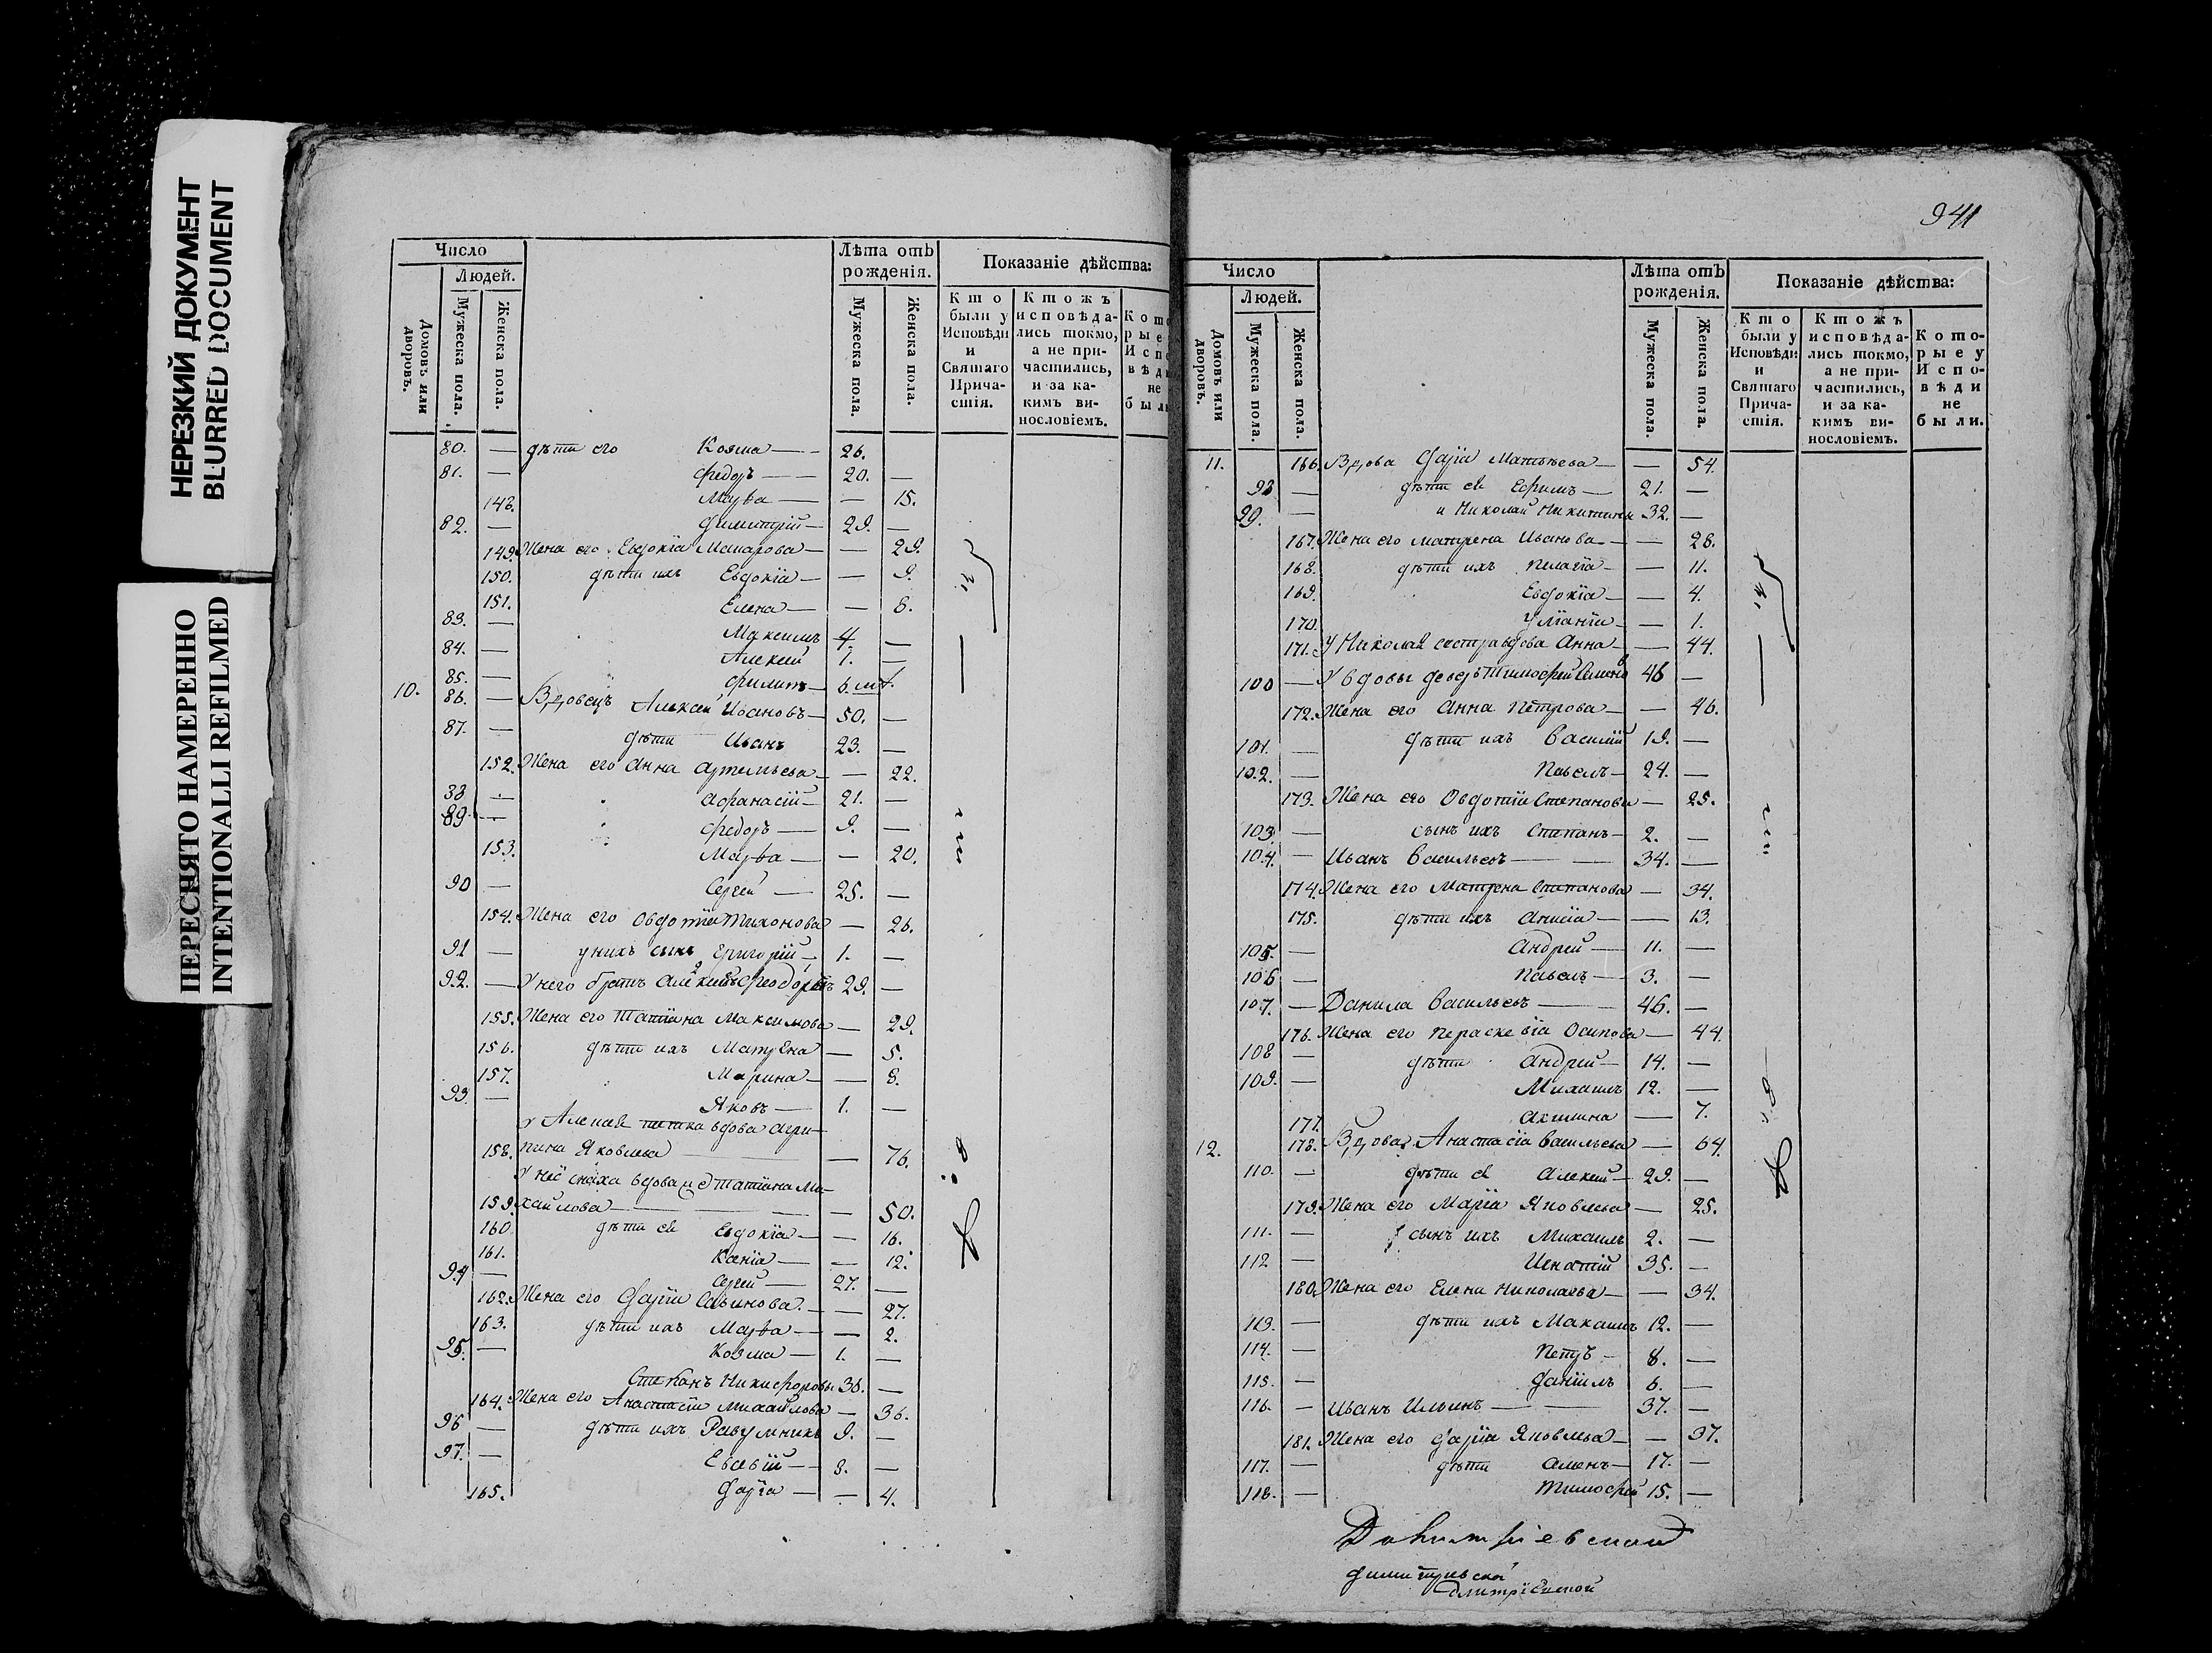 НЕРЕЗКИЙ ДОКУМЕНТ
BLURRED DOCUMENT
ПЕРЕСНЯТО НАМЕРЕННО
INTENTIONALLI REFILMED
Число
Людей.
Домовъ или дворовъ.
Мужеска пола.
Женска пола.
Лѣта отъ рожденія.
Мужеска пола.
Женска пола.
Показаніе дѣйства:
Кто были у Исповѣди и Святаго Причастія.
Ктожъ исповѣдались токмо, а не причастились, и за какимъ винословіемъ.
80. — дѣти его Козма — 26.
81. — Федоръ — 20. —
148. Марва — — 15.
82. — Димитрій — 29. —
149. Жена его Евдокіа Макарова — — 29.
150. дѣти ихъ Евдокіа — — 9.
151. Елена — — 8.
83. — Максимъ 4. —
84. — Алексій 1. —
85. — Филипъ — 6. м.
10. 86. — Вдовецъ Алексій Ивановъ — 50. —
87. — дѣти Иванъ 23. —
152. Жена его Анна Артемьева — — 22.
88 — Афанасій — 21. —
89 — Федоръ — 9. —
153. Марва — — 20.
90 — Сергей — 25. —
154. Жена его Овдотіа Тихонова — 26.
91 — у нихъ сынъ Григорій — 1. —
92. — У него братъ 29. —
155. Жена его Татіана Максимова — 29.
156. дѣти ихъ Матрена — 5.
157. Марина — — 8.
93. — Яковъ — 1. —
У Алексія тетка вдова Агри-
158. пина Яковлева — — 76.
У неё сноха вдова Татіана Ми-
159. хайлова — — 50.
160. дѣти ея Евдокіа — — 16.
161. Ксеніа — — 12.
94 — Сергей — 27. —
162. Жена его Даріа Савинова. — — 27.
163. дѣти ихъ Марва — — 2.
95. — Козма — 1. —
Степанъ Никифоровъ 36. —
164. Жена его Анастасіа Михайлова — 36.
96 — дѣти ихъ 9. —
97. — Евсевій — 8. —
165. Даріа — — 4.
941
Число
Людей.
Домовъ или дворовъ.
Мужеска пола.
Женска пола.
Лѣта отЪ рожденія.
Мужеска пола.
Женска пола.
Показаніе дѣйства:
Кто были у Исповѣди и Святаго Причастія.
Ктожъ исповѣдались токмо, а не причастились, и за какимъ винословіемъ.
Которые у Исповѣди не были.
11. 166. Вдова Даріа Матвѣева — — 54.
98 — дѣти ея Ефимъ — 21. —
99. — и Николай Никитины 32. —
167. Жена его Матрена Иванова — — 28.
168. дѣти ихъ Пелагіа — — 11.
169. Евдокіа — — 4.
170. — 1.
171. У Николая сестра вдова Анна — — 44.
100 — У вдовы деверь Тимофей 46 —
172. Жена его Анна Петрова — — 46.
101. — дѣти ихъ Василій 19. —
102. — Павелъ — 24. —
173. Жена его Овдотіа Степанова — 25.
103 — сынъ ихъ Степанъ — 2. —
104. — Иванъ Васильевъ — — 34. —
174. Жена его Матрена Степанова — 34.
175. дѣти ихъ Анисіа — — 13.
105. — Андрей — 11. —
106 — Павелъ — 3. —
107. — Данила Васильевъ — 46. —
176. Жена его Параскевіа Осипова — 44.
108 — дѣти Андрей — 14. —
109. — Михаилъ 12. —
177. Акилина — 7.
12. 178. Вдова Анастасіа Васильева — 64.
110. — дѣти ея Алексій — 29. —
179. Жена его Маріа Яковлева — 25.
111. — сынъ ихъ Михаилъ 2. —
112 — Игнатій 35. —
180. Жена его Елена Николаева — — 34.
113. — дѣти ихъ 12. —
114. — Петръ — 8. —
115. — Даніилъ 6. —
116. — Иванъ Ильинъ — — 37. —
181. Жена его Даріа Яковлева — — 37.
117. — дѣти — 17. —
118. — Тимофей 15. —
Димитріевской
Дмитріевской